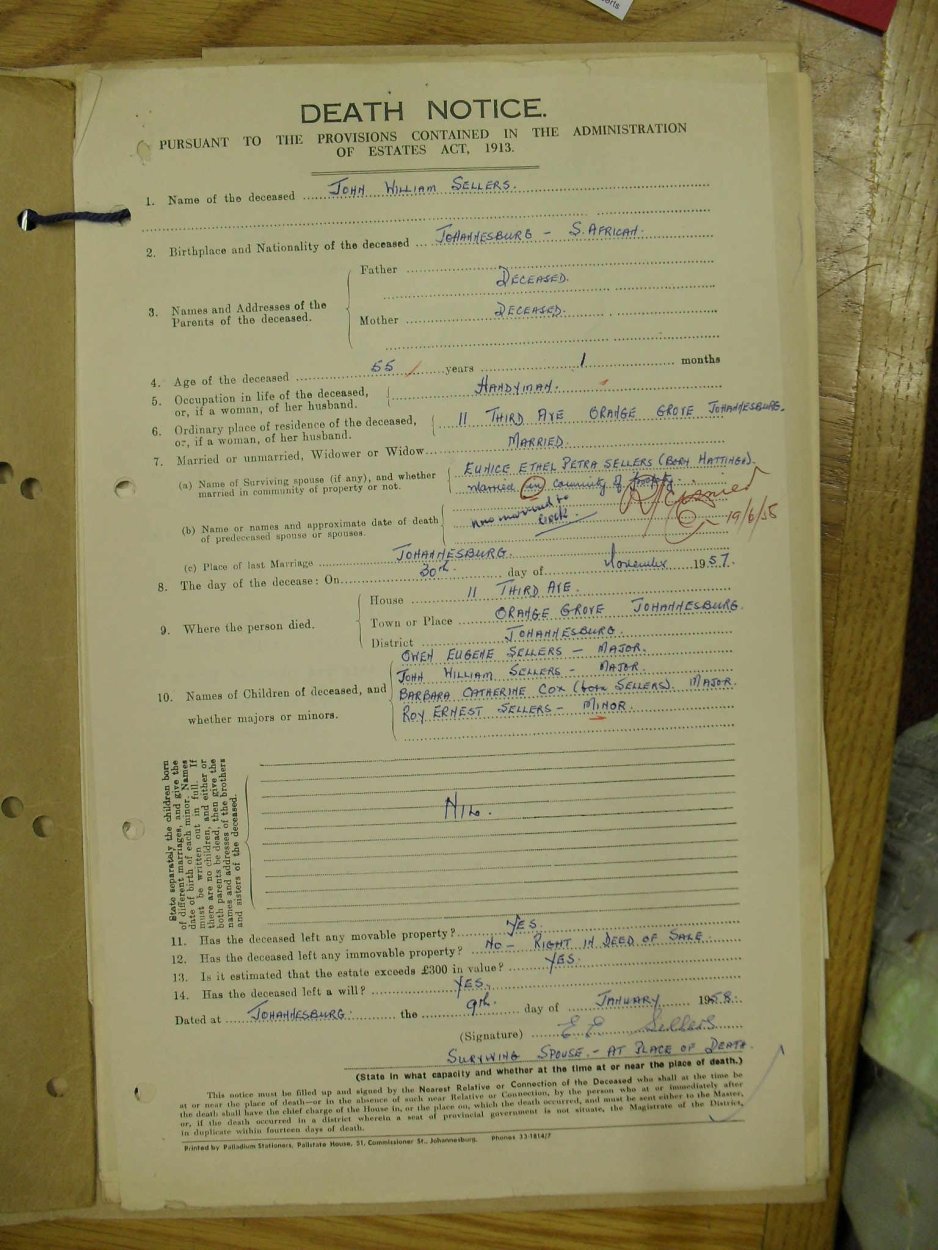 DEATH NOTICE.
PURSUANT TO THE PROVISIONS CONTAINED IN THE ADMINISTRATION
OF ESTATES ACT, 1913.
1. Name of the deceased JOHN WILLIAM SELLERS.
2. Birthplace and Nationality of the deceased JOHANNESBURG – S. AFRICAN.
3. Names and Addresses of the Parents of the deceased.
Father DECEASED.
Mother DECEASED.
4. Age of the deceased 55 years 1 months
5. Occupation in life of the deceased, HANDYMAN.
or, if a woman, of her husband.
6. Ordinary place of residence of the deceased, 11 THIRD AVE ORANGE GROVE JOHANNESBURG.
or, if a woman, of her husband.
7. Married or unmarried, Widower or Widow MARRIED.
(a) Name of Surviving spouse (if any), and whether EUNICE ETHEL PETRA SELLERS (BORN HATTINGH).
married in community of property or not. Married in community of property.
19/6/58
(b) Name or names and approximate date of death
of predeceased spouse or spouses.
(c) Place of last Marriage JOHANNESBURG.
8. The day of the decease: On 30th. day of November 1957.
9. Where the person died.
House 11 THIRD AVE.
Town or Place ORANGE GROVE JOHANNESBURG.
District JOHANNESBURG.
10. Names of Children of deceased, and
whether majors or minors.
OWEN EUGENE SELLERS – MAJOR.
JOHN WILLIAM SELLERS – MAJOR.
BARBARA CATHERINE COX (born SELLERS) MAJOR.
ROY ERNEST SELLERS – MINOR.
State separately the children born
of different marriages, and give the
date of birth of each minor. Names
must be written out in full. If
there are no children, and either or
both parents be dead, then give the
names and addresses of the brothers
and sisters of the deceased.
NIL.
11. Has the deceased left any movable property? YES.
12. Has the deceased left any immovable property? NO – RIGHT IN DEED OF SALE.
13. Is it estimated that the estate exceeds £300 in value? YES.
14. Has the deceased left a will? YES.
Dated at JOHANNESBURG. the 9th. day of JANUARY 1958.
(Signature) E E Sellers
SURVIVING SPOUSE. – AT PLACE OF DEATH.
(State in what capacity and whether at the time at or near the place of death.)
This notice must be filled up and signed by the Nearest Relative or Connection of the Deceased who shall at the time be
at or near the place of death—or in the absence of such near Relative or Connection, by the person who at or immediately after
the death shall have the chief charge of the House in, or the place on, which the death occurred, and must be sent either to the Master,
or, if the death occurred in a district wherein a seat of provincial government is not situate, the Magistrate of the District,
in duplicate within fourteen days of death.
Printed by Palladium Stationers, Pallstate House, 51, Commissioner St., Johannesburg. Phones 33-1814/7